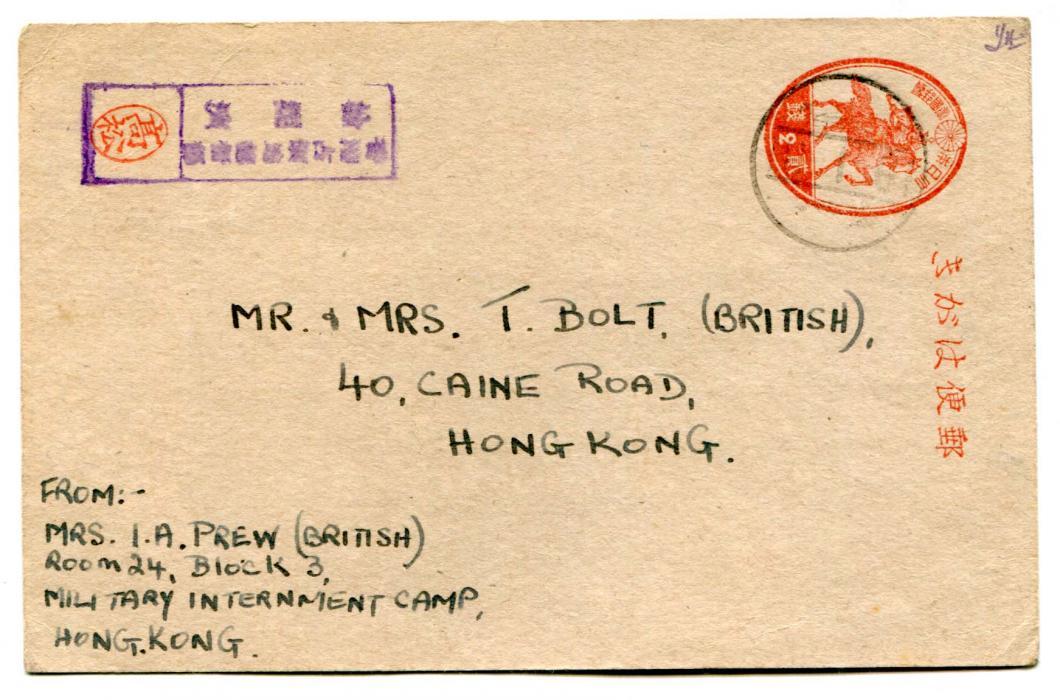 貳 2 錢
きがは便郵
MR. & MRS. T. BOLT, (BRITISH),
40, CAINE ROAD,
HONG KONG.
FROM:-
MRS. I.A. PREW (BRITISH)
Room 24, Block 3,
MILITARY INTERNMENT CAMP,
HONG.KONG.